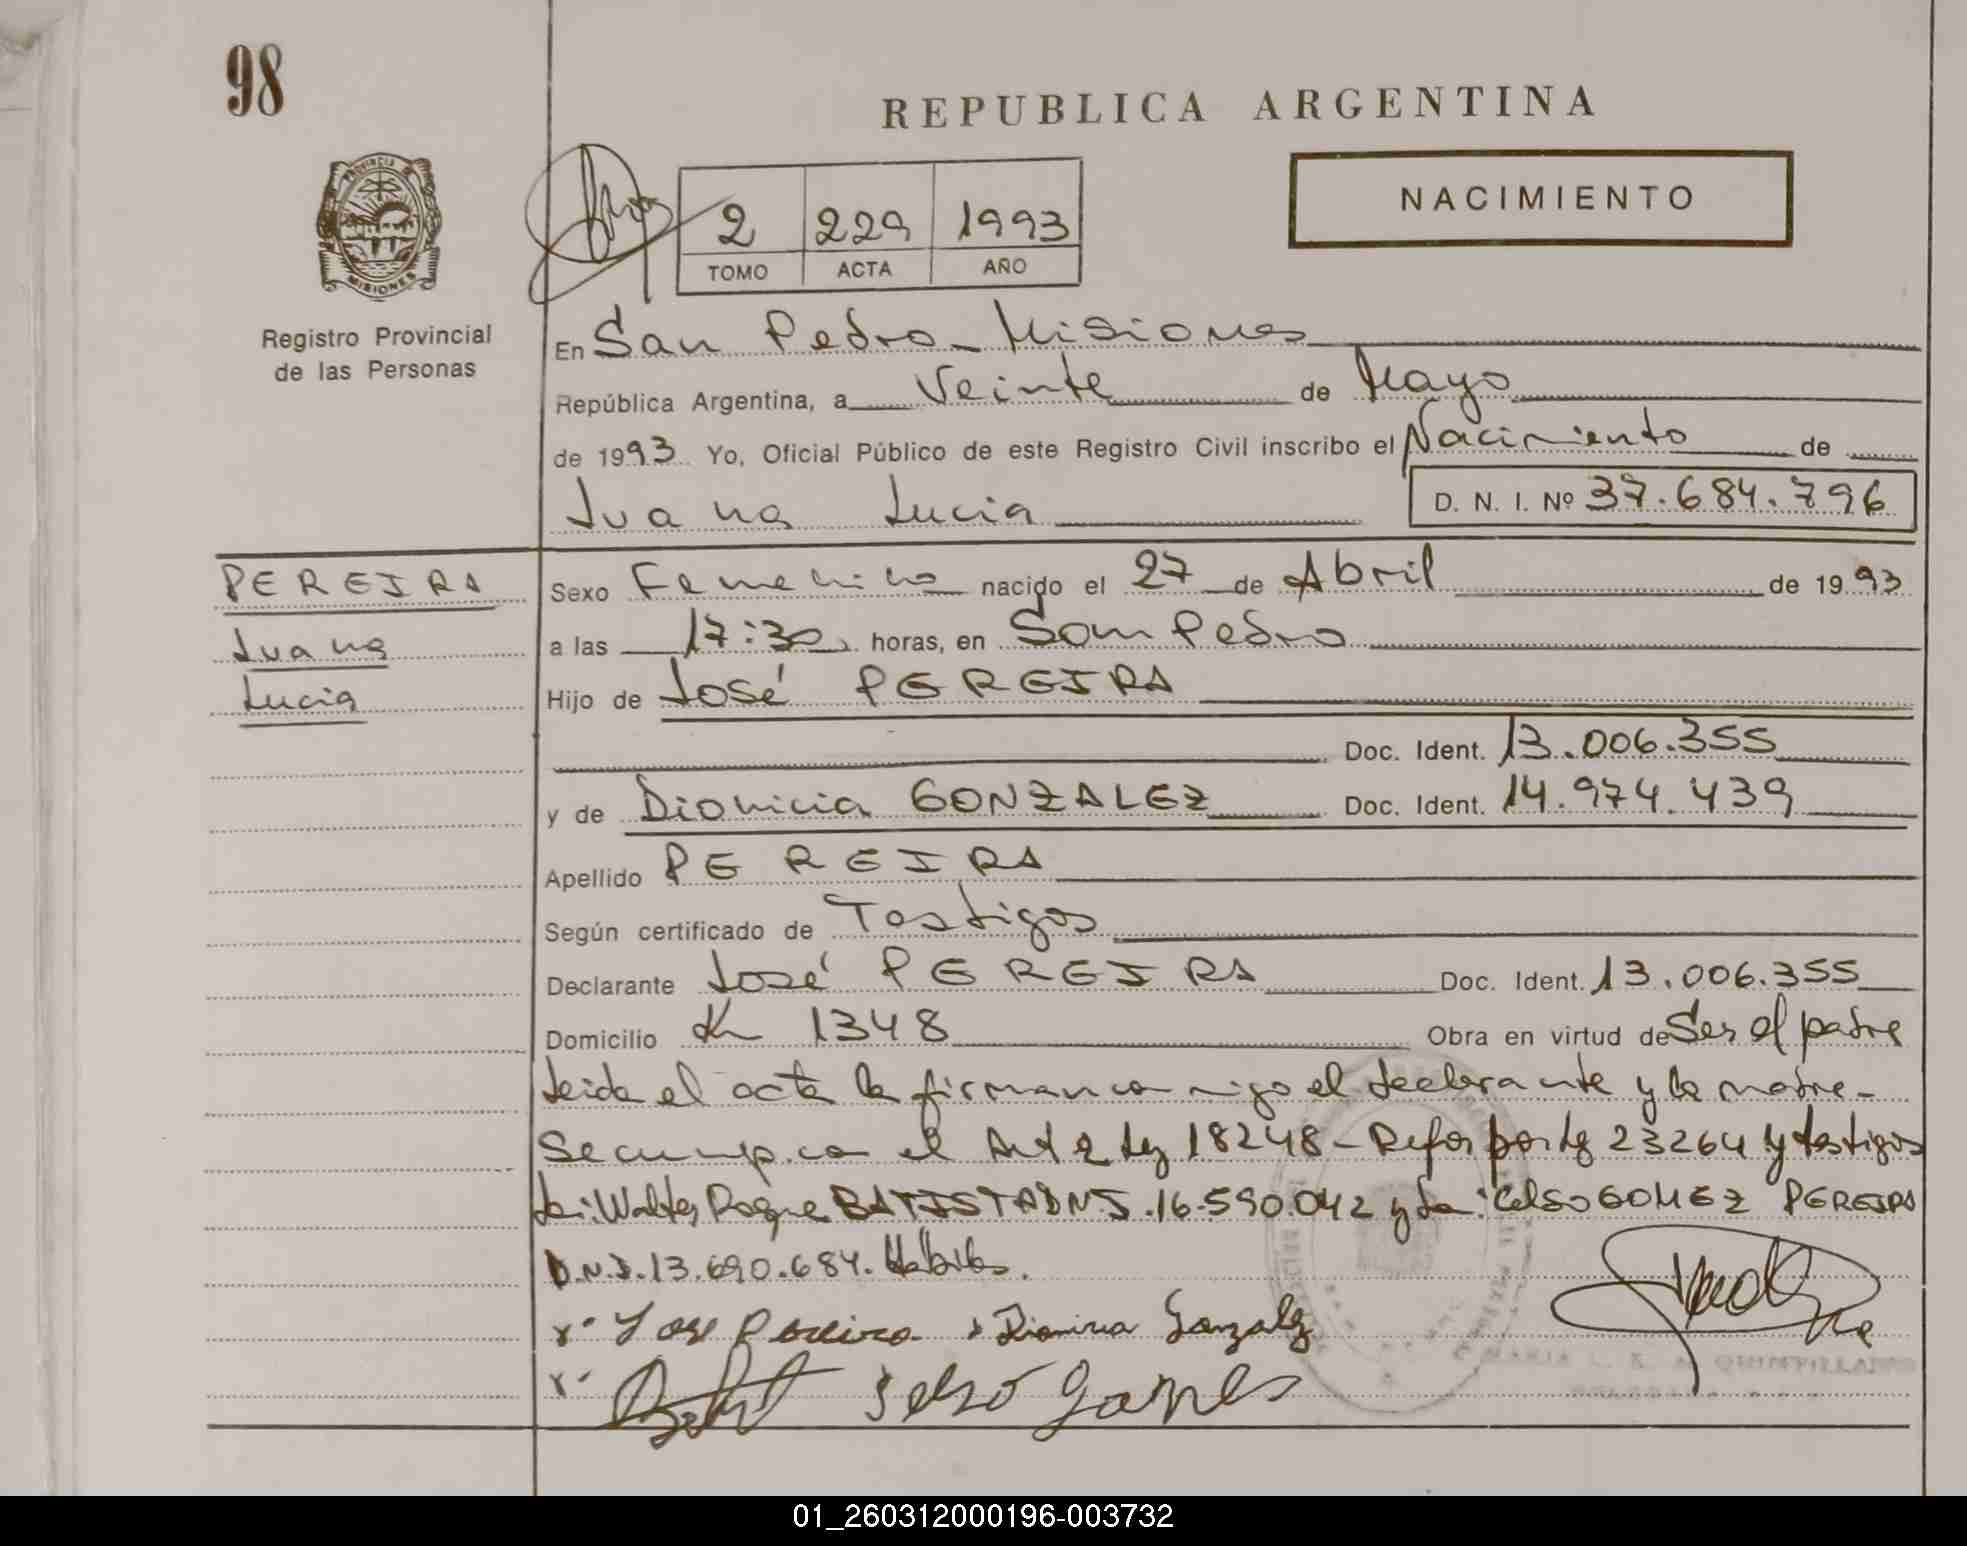 98
REPUBLICA ARGENTINA
PROVINCIA
MISIONES
NACIMIENTO
2 229 1993
TOMO ACTA AÑO
Registro Provincial
de las Personas
En San Pedro - Misiones
República Argentina, a Veinte de Mayo
de 1993 Yo, Oficial Público de este Registro Civil inscribo el Nacimiento de
Juana Lucia D. N. I. Nº 37.684.796
PEREIRA
Juana
Lucia
Sexo Femenino nacido el 27 de Abril de 1993
a las 17:30 horas, en San Pedro
Hijo de José PEREIRA
Doc. Ident. 13.006.355
y de Dionicia GONZALEZ Doc. Ident. 14.974.439
Apellido PEREIRA
Según certificado de Testigos
Declarante José PEREIRA Doc. Ident. 13.006.355
Domicilio Km 1348 Obra en virtud de Ser el padre
Leida el acta la firman conmigo el declarante y la madre-
Se cump. con el Art 2 Ley 18248 - Refor por Ley 23264 y testigos
Walter Roque BATISTA DNI. 16.590.042 y Celso GOMEZ PEREIRA
D.N.I. 13.690.684.
Jose Pereira Dionicia Gonzalez
Celso Gomes
MARIA QUINTILLAN
01_260312000196-003732